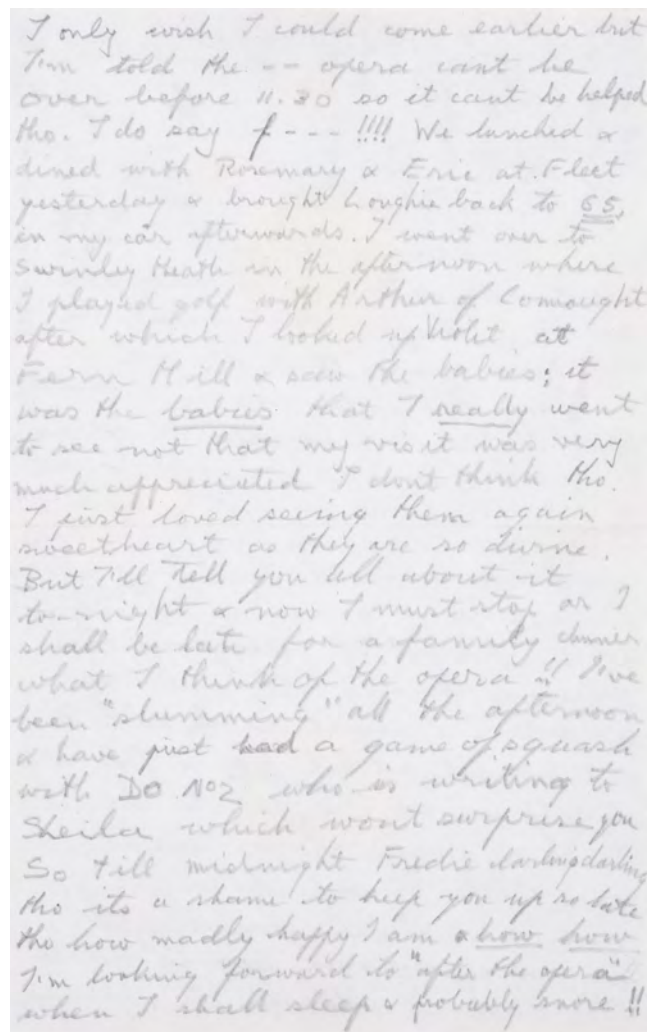 I only wish I could come earlier but
I'm told the -- opera cant be
over before 11.30 so it cant be helped
tho. I do say f---!!!! We lunched &
dined with Rosemary & Eric at Fleet
yesterday & brought Loughie back to 65,
in my car afterwards. I went over to
Swinley Heath in the afternoon where
I played golf with Arthur of Connaught
after which I looked up Violet at
Fern Hill & saw the babies; it
was the babies that I really went
to see not that my visit was very
much appreciated I dont think tho.
I just loved seeing them again
sweetheart as they are so divine.
But I'll tell you all about it
to-night & now I must stop or I
shall be late for a family dinner
what I think of the opera!! I've
been "slumming" all the afternoon
& have just had a game of squash
with DO No2 who is writing to
Sheila which wont surprise you
So till midnight Fredie darling darling
tho its a shame to keep you up so late
tho how madly happy I am & how how
I'm looking forward to "after the opera"
when I shall sleep & probably snore!!